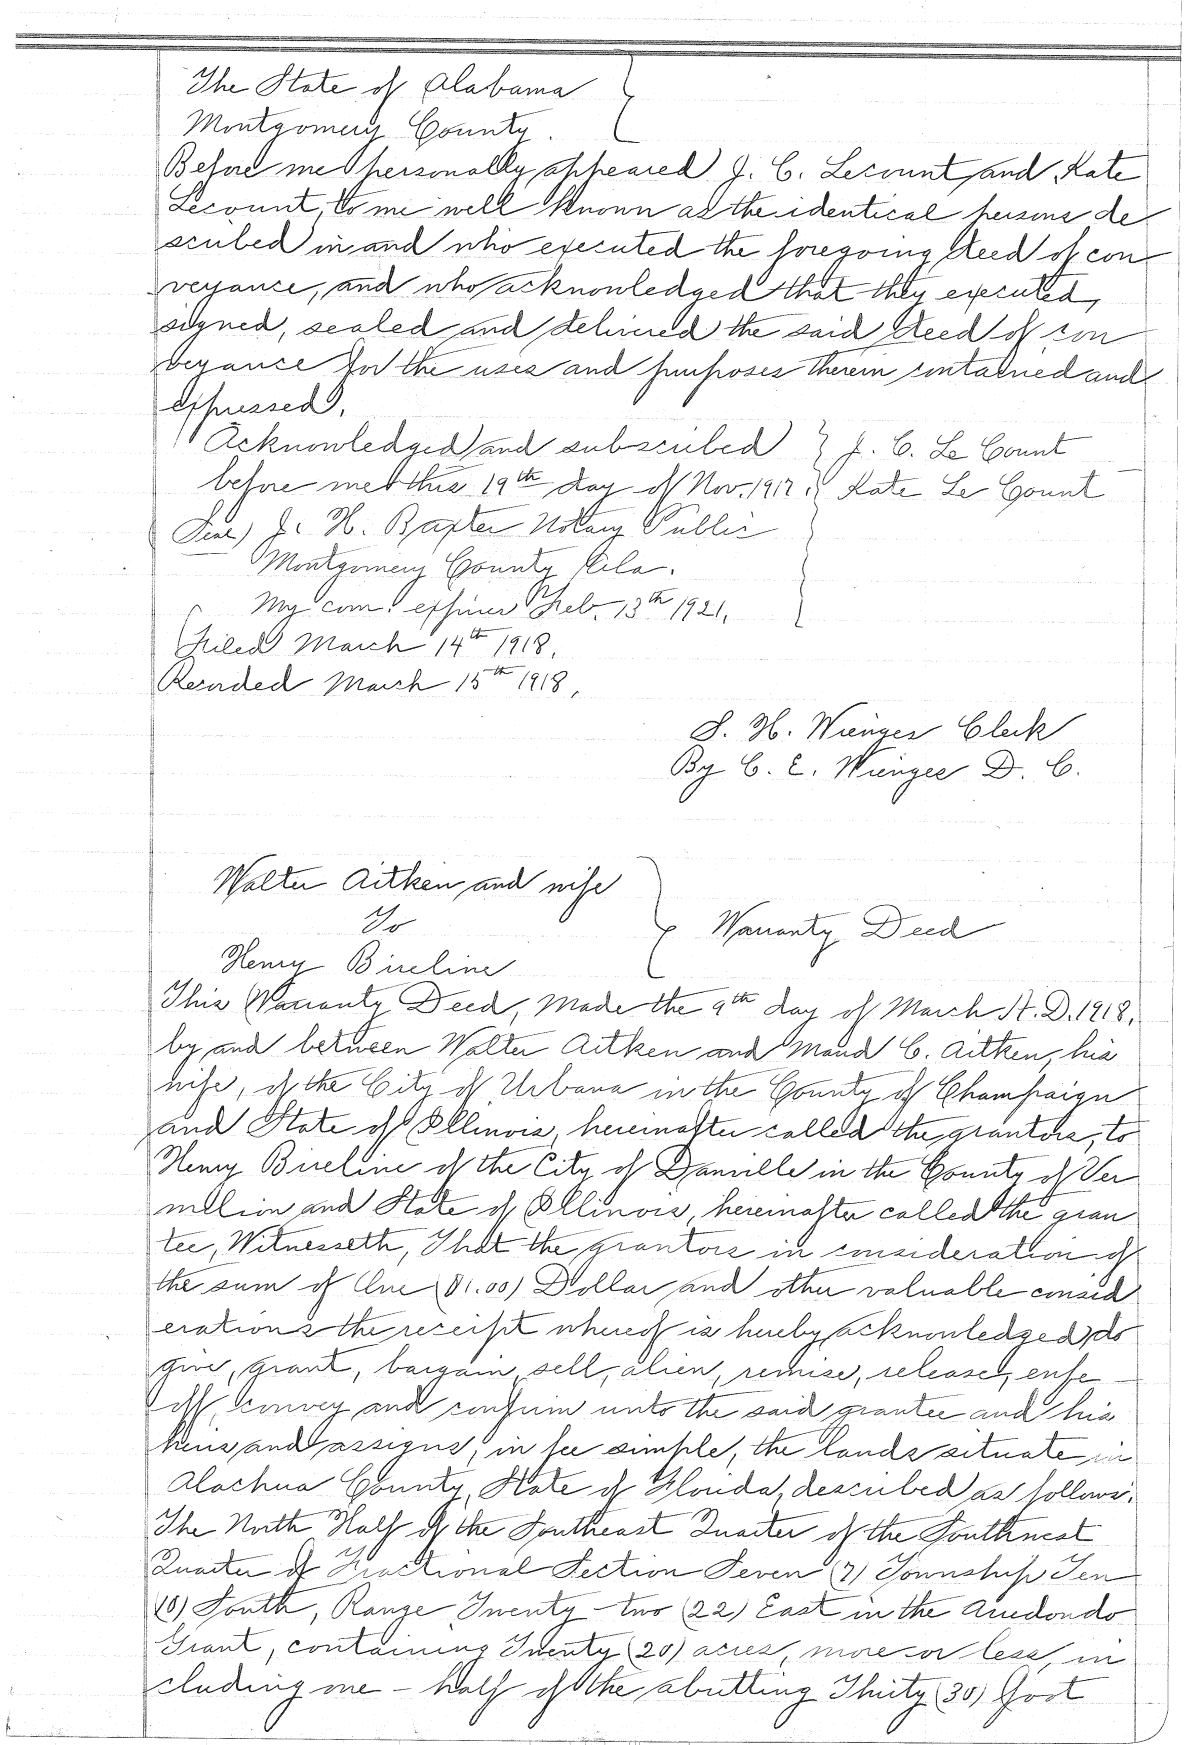 The State of Alabama
Montgomery County.
Before me personally appeared J. C. Lecount and Kate
Lecount, to me well known as the identical persons de
scribed in and who executed the foregoing deed of con
veyance, and who acknowledged that they executed,
signed, sealed and delivered the said deed of con
veyance for the uses and purposes therein contained and
expressed.
Acknowledged and subscribed J. C. Le Count
before me this 19th day of Nov. 1917. Kate Le Count
(Seal) J. H. Baxter Notary Public
Montgomery County Ala.
My com. expires Feb. 13th 1921,
Filed March 14th 1918,
Recorded March 15th 1918,
S. H. Wienges Clerk
By C. E. Wienges D. C.
Walter Aitken and wife
To
Warranty Deed
Henry Bireline
This Warranty Deed, Made the 9th day of March A. D. 1918,
by and between Walter Aitken and Maud C. Aitken, his
wife, of the City of Urbana in the County of Champaign
and State of Illinois, hereinafter called the grantors, to
Henry Bireline of the City of Danville in the County of Ver
million and State of Illinois, hereinafter called the gran
tee, Witnesseth, That the grantors in consideration of
the sum of One ($1.00) Dollar and other valuable consid
erations the receipt whereof is hereby acknowledged, do
give, grant, bargain, sell, alien, remise, release, enfe-
off, convey and confirm unto the said grantee and his
heirs and assigns, in fee simple, the lands situate in
Alachua County, State of Florida, described as follows:
The North Half of the Southeast Quarter of the Southwest
Quarter of Fractional Section Seven (7) Township Ten
(10) South, Range Twenty-two (22) East in the Arredondo
Grant, containing Twenty (20) acres, more or less, in
cluding one-half of the abutting Thirty (30) foot